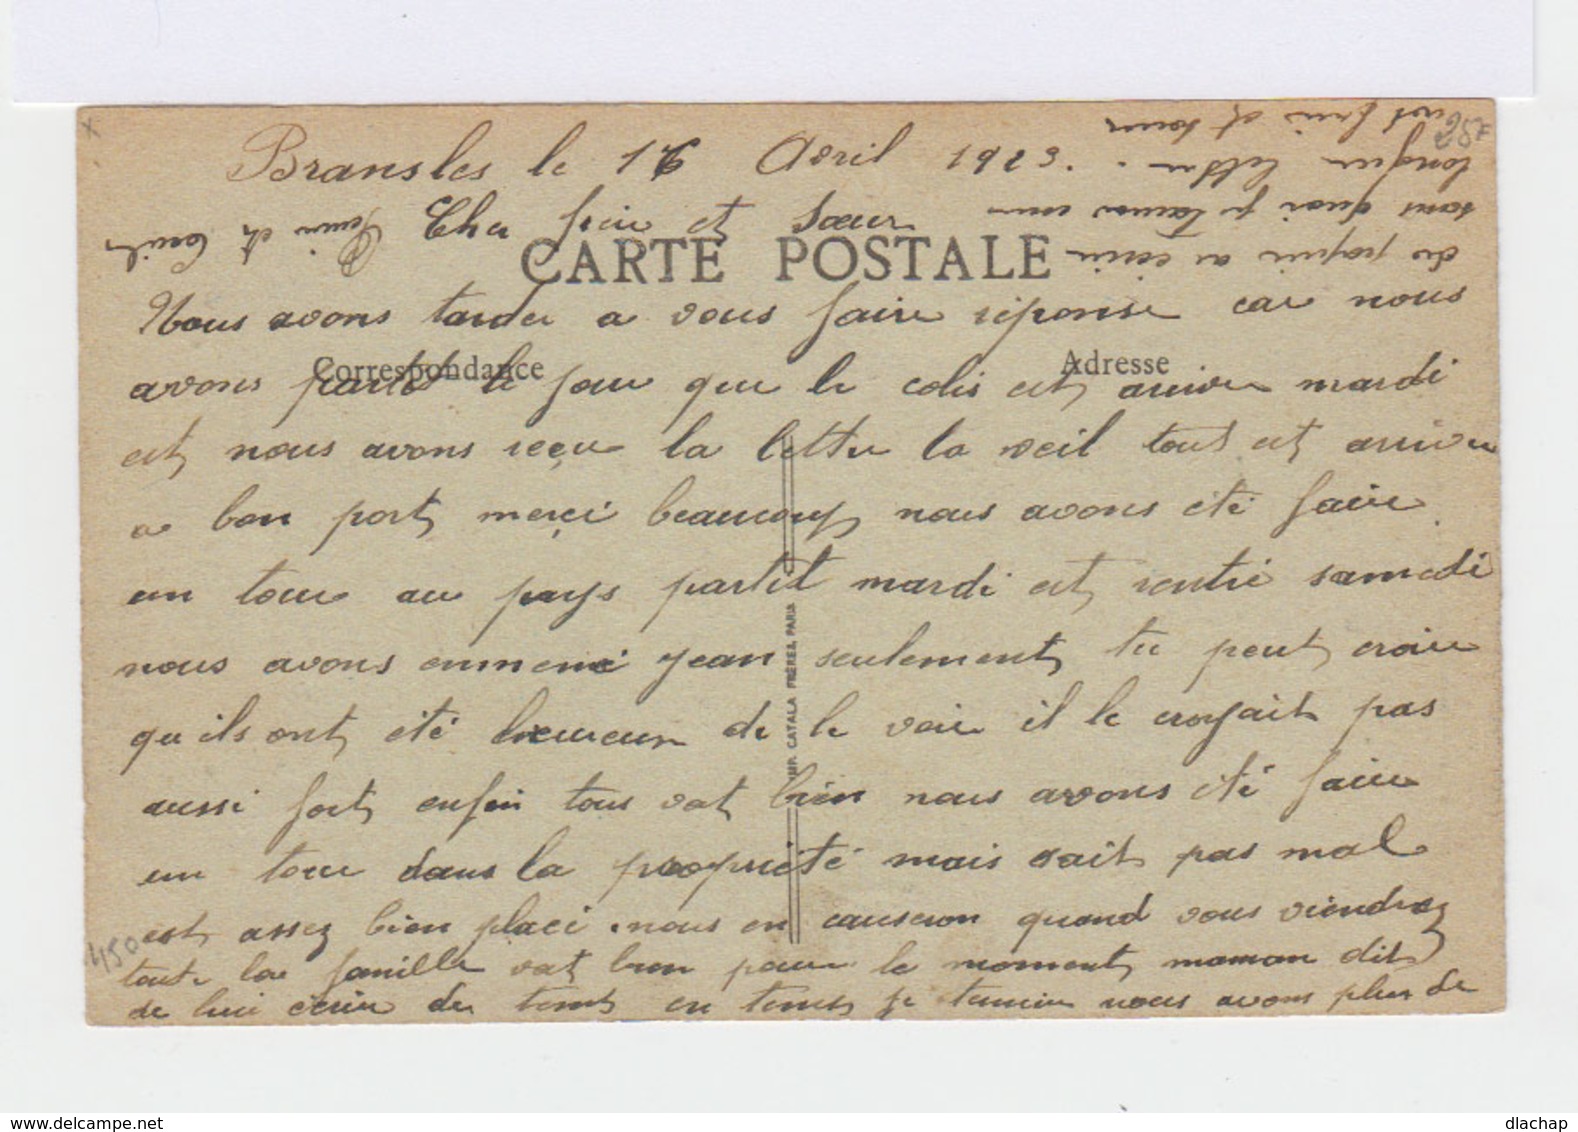 Bransles le 16 Avril 1923.
Cher frère et Sœur
CARTE POSTALE
Nous avons tarder a vous faire réponse car nous
Correspondance
Adresse
avons partit le jour que le colis est arriver mardi
et nous avons reçu la lettre la veil tout est arriver
a bon port merçi beaucoup nous avons été faire
un tour au pays partit mardi et rentré samedi
nous avons emmené jean seulement tu peut croire
qu ils ont été heureux de le voir il le croyait pas
aussi fort enfin tous vat bien nous avons été faire
un tour dans la propriété mais sait pas mal
est assez bien placé . nous en causeron quand vous viendrez
toute la famille vat bien pour le moment maman dit
de lui écrir de tems en tems je termine nous avons plus de
du papier a écrir
sans quoi je tairais une
longue lettre .
vot frère et sœur
et
IMP. CATALA FRÈRES, PARIS
450
dlachap